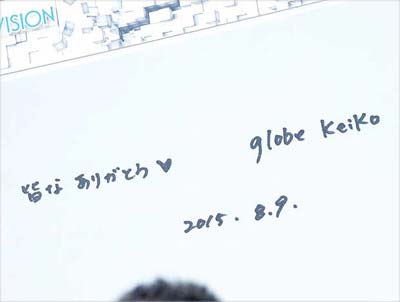 VISION
globe Keiko
皆な ありがとう♥
2015. 8.9.